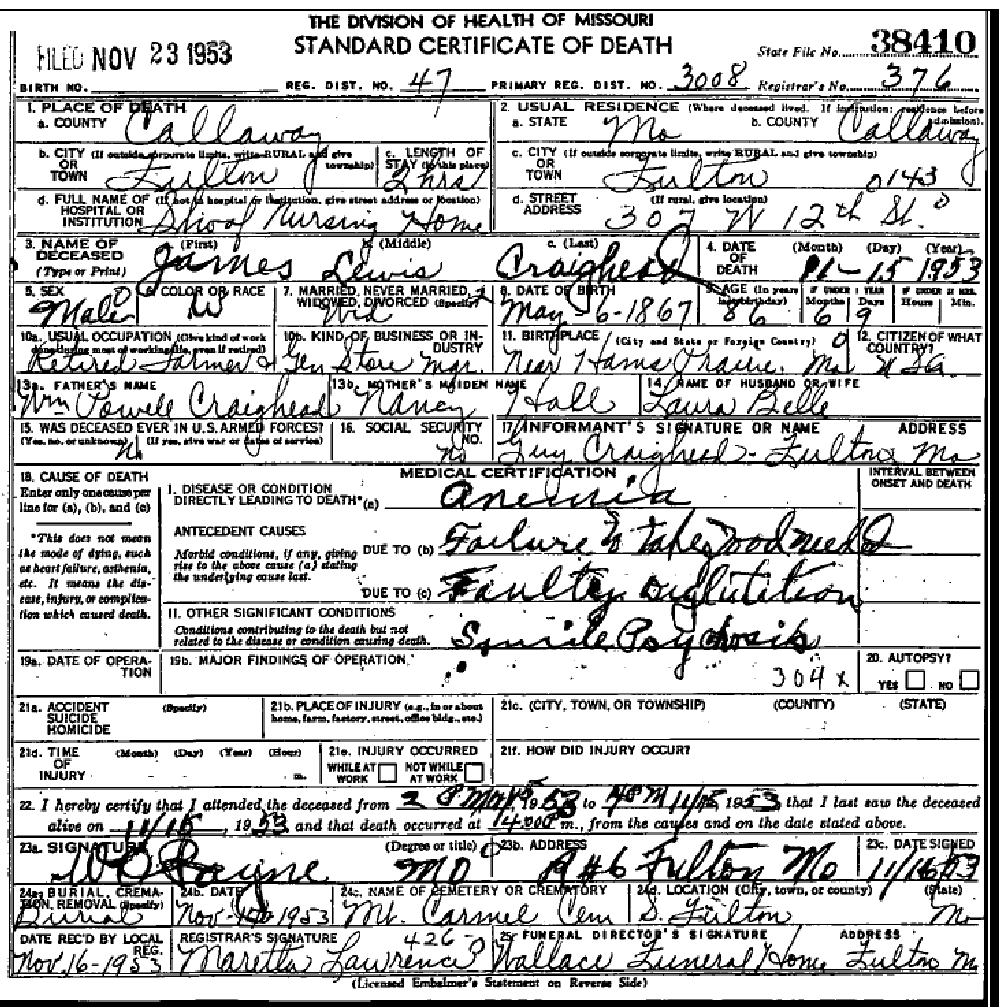 THE DIVISION OF HEALTH OF MISSOURI
STANDARD CERTIFICATE OF DEATH
FILED NOV 23 1953
State File No. 38410
BIRTH NO. REG. DIST. NO. 47 PRIMARY REG. DIST. NO. 3008 Registrar's No. 376
1. PLACE OF DEATH
a. COUNTY Callaway
2. USUAL RESIDENCE (Where deceased lived. If institution: residence before admission).
a. STATE Mo b. COUNTY Callaway
b. CITY OR TOWN (If outside corporate limits, write RURAL and give township) Fulton
c. LENGTH OF STAY (in this place) 2 hrs
c. CITY OR TOWN (If outside corporate limits, write RURAL and give township) Fulton 0143
d. FULL NAME OF HOSPITAL OR INSTITUTION (If not in hospital or institution, give street address or location) Nursing Home
d. STREET ADDRESS (If rural, give location) 307 W 12th St.
3. NAME OF DECEASED (Type or Print) a. (First) James b. (Middle) Lewis c. (Last) Craighead
4. DATE OF DEATH (Month) (Day) (Year) 11-15 1953
5. SEX Male
6. COLOR OR RACE W
7. MARRIED, NEVER MARRIED, WIDOWED, DIVORCED (Specify) Wid
8. DATE OF BIRTH May 6-1867
9. AGE (In years last birthday) 86 IF UNDER 1 YEAR Months 6 Days 9 IF UNDER 24 HRS. Hours Min.
10a. USUAL OCCUPATION (Give kind of work done during most of working life, even if retired) Retired Farmer &
10b. KIND OF BUSINESS OR INDUSTRY Gen Store Mgr.
11. BIRTHPLACE (City and State or Foreign Country) Near Hams Prairie, Mo
12. CITIZEN OF WHAT COUNTRY? USA.
13a. FATHER'S NAME Wm Powell Craighead
13b. MOTHER'S MAIDEN NAME Nancy Hall
14. NAME OF HUSBAND OR WIFE Laura Belle
15. WAS DECEASED EVER IN U.S. ARMED FORCES? (Yes, no, or unknown) (If yes, give war or dates of service) No
16. SOCIAL SECURITY NO. No
17. INFORMANT'S SIGNATURE OR NAME ADDRESS Guy Craighead - Fulton, Mo
18. CAUSE OF DEATH
Enter only one cause per line for (a), (b), and (c)
*This does not mean the mode of dying, such as heart failure, asthenia, etc. It means the disease, injury, or complication which caused death.
MEDICAL CERTIFICATION
INTERVAL BETWEEN ONSET AND DEATH
I. DISEASE OR CONDITION DIRECTLY LEADING TO DEATH* (a) Anemia
ANTECEDENT CAUSES
Morbid conditions, if any, giving rise to the above cause (a) stating the underlying cause last.
DUE TO (b) Failure to take food
DUE TO (c) Faulty deglutition
II. OTHER SIGNIFICANT CONDITIONS
Conditions contributing to the death but not related to the disease or condition causing death.
Senile Psychosis
19a. DATE OF OPERATION
19b. MAJOR FINDINGS OF OPERATION 304x
20. AUTOPSY? YES NO
21a. ACCIDENT SUICIDE HOMICIDE (Specify)
21b. PLACE OF INJURY (e.g., in or about home, farm, factory, street, office bldg., etc.)
21c. (CITY, TOWN, OR TOWNSHIP) (COUNTY) (STATE)
21d. TIME OF INJURY (Month) (Day) (Year) (Hour) m.
21e. INJURY OCCURRED WHILE AT WORK NOT WHILE AT WORK
21f. HOW DID INJURY OCCUR?
22. I hereby certify that I attended the deceased from 1953 to 11/15, 1953 that I last saw the deceased
alive on 11/15, 1953 and that death occurred at m., from the causes and on the date stated above.
23a. SIGNATURE (Degree or title) MD
23b. ADDRESS R#6 Fulton Mo
23c. DATE SIGNED 11/16/53
24a. BURIAL, CREMATION, REMOVAL (Specify) Burial
24b. DATE Nov 1953
24c. NAME OF CEMETERY OR CREMATORY Mt. Carmel Cem
24d. LOCATION (City, town, or county) (State) S. Fulton Mo
DATE REC'D BY LOCAL REG. Nov 16-1953
REGISTRAR'S SIGNATURE Maretta Lawrence 426-0
25. FUNERAL DIRECTOR'S SIGNATURE ADDRESS Wallace Funeral Home Fulton Mo
(Licensed Embalmer's Statement on Reverse Side)